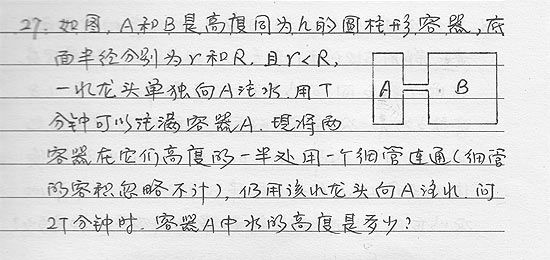 27. 如图, A和B是高度同为h的圆柱形容器, 底
面半径分别为r和R, 且r<R,
一水龙头单独向A注水, 用T
分钟可以注满容器A. 现将两
容器在它们高度的一半处用一个细管连通(细管
的容积忽略不计), 仍用该水龙头向A注水. 问
2T分钟时. 容器A中水的高度是多少?
A B